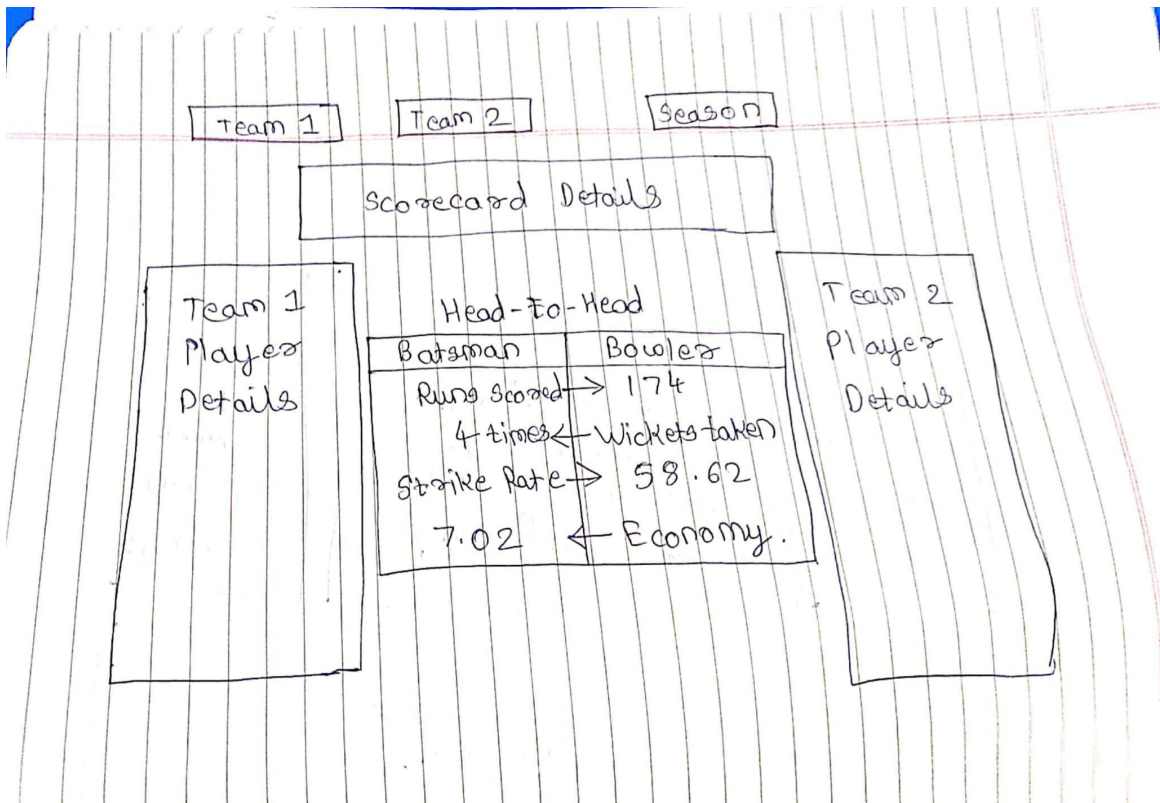 Team 1
Team 2
Season
Scorecard Details
Team 1
Player
Details
Head-to-Head
Batsman Bowler
Runs Scored → 174
4 times ← Wickets taken
Strike Rate → 58.62
7.02 ← Economy.
Team 2
Player
Details